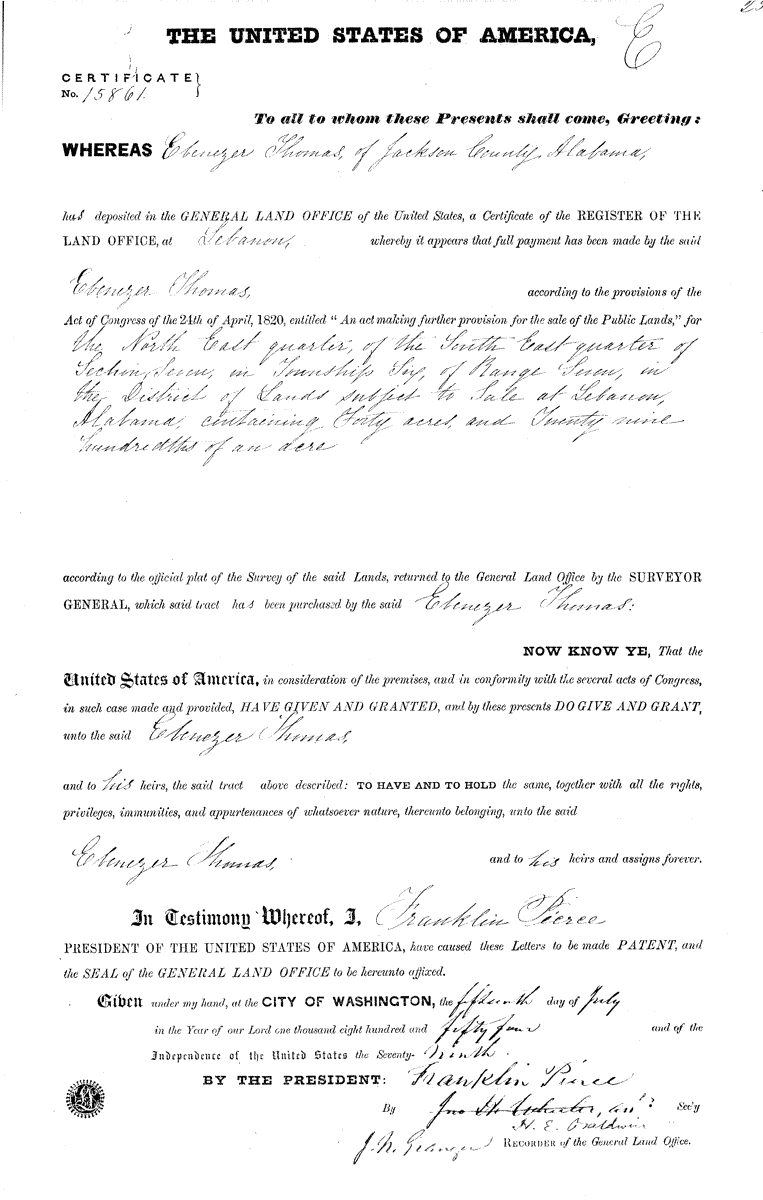 23
THE UNITED STATES OF AMERICA,
E
CERTIFICATE
No. 15861.
To all to whom these Presents shall come, Greeting:
WHEREAS Ebenezer Thomas, of Jackson County, Alabama,
has deposited in the GENERAL LAND OFFICE of the United States, a Certificate of the REGISTER OF THE
LAND OFFICE, at Lebanon, whereby it appears that full payment has been made by the said
Ebenezer Thomas, according to the provisions of the
Act of Congress of the 24th of April, 1820, entitled "An act making further provision for the sale of the Public Lands," for
the North East quarter, of the South East quarter of
Section Seven, in Township Six, of Range Seven, in
the District of Lands subject to Sale at Lebanon,
Alabama, containing Forty acres, and Twenty nine
hundredths of an acre
according to the official plat of the Survey of the said Lands, returned to the General Land Office by the SURVEYOR
GENERAL, which said tract has been purchased by the said Ebenezer Thomas:
NOW KNOW YE, That the
United States of America, in consideration of the premises, and in conformity with the several acts of Congress,
in such case made and provided, HAVE GIVEN AND GRANTED, and by these presents DO GIVE AND GRANT,
unto the said Ebenezer Thomas,
and to his heirs, the said tract above described: TO HAVE AND TO HOLD the same, together with all the rights,
privileges, immunities, and appurtenances of whatsoever nature, thereunto belonging, unto the said
Ebenezer Thomas, and to his heirs and assigns forever.
In Testimony Whereof, I, Franklin Pierce
PRESIDENT OF THE UNITED STATES OF AMERICA, have caused these Letters to be made PATENT, and
the SEAL of the GENERAL LAND OFFICE to be hereunto affixed.
Given under my hand, at the CITY OF WASHINGTON, the fifteenth day of July
in the Year of our Lord one thousand eight hundred and fifty four and of the
Independence of the United States the Seventy-Ninth.
BY THE PRESIDENT: Franklin Pierce
By Sec'y
H. E. Baldwin
J. N. Granger RECORDER of the General Land Office.